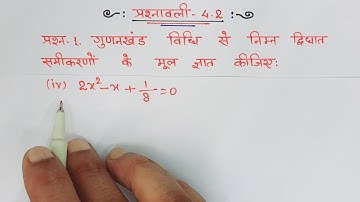 प्रश्नावली - 4.2
प्रश्न-1. गुणनखंड विधि से निम्न द्विघात
समीकरणों के मूल ज्ञात कीजिए:
(iv) 2x² - x + 1/8 = 0